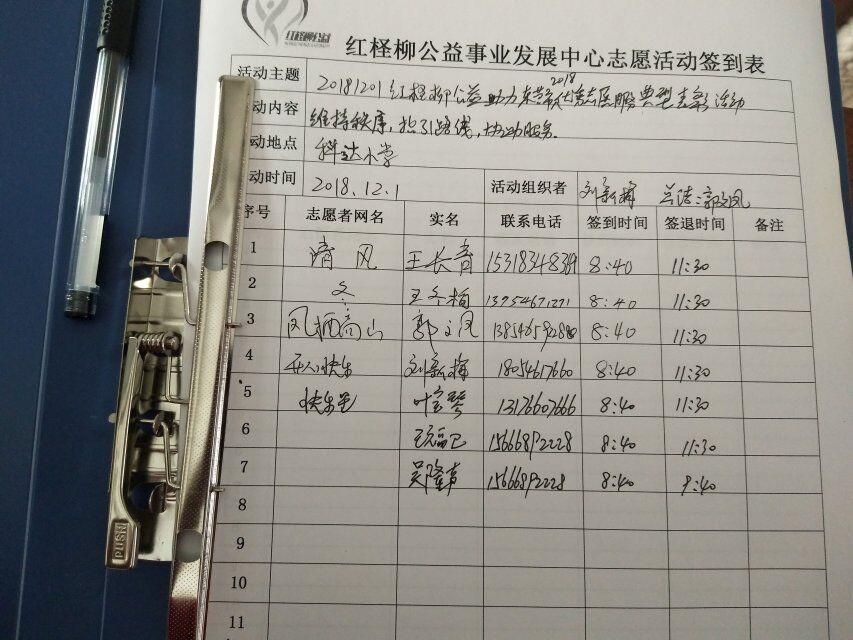 红柽柳公益
红柽柳公益事业发展中心志愿活动签到表
活动主题 20181201红柽柳公益助力东营2018优秀志愿服务典型表彰活动
动内容 维持秩序,指引路线,协助服务.
动地点 科达小学
动时间 2018.12.1 活动组织者 刘新梅 总结:郭文凤
序号 志愿者网名 实名 联系电话 签到时间 签退时间 备注
1 清风 王长青 15318348389 8:40 11:30
2 冬 王冬梅 13954671271 8:40 11:30
3 凤栖高山 郭文凤 13854659288 8:40 11:30
4 开心快乐 刘新梅 18054617660 8:40 11:30
5 快乐 叶宝琴 13176607666 8:40 11:30
6 15666892228 8:40 11:30
7 吴隆 15666892228 8:40 9:40
8
9
10
11
PUSH